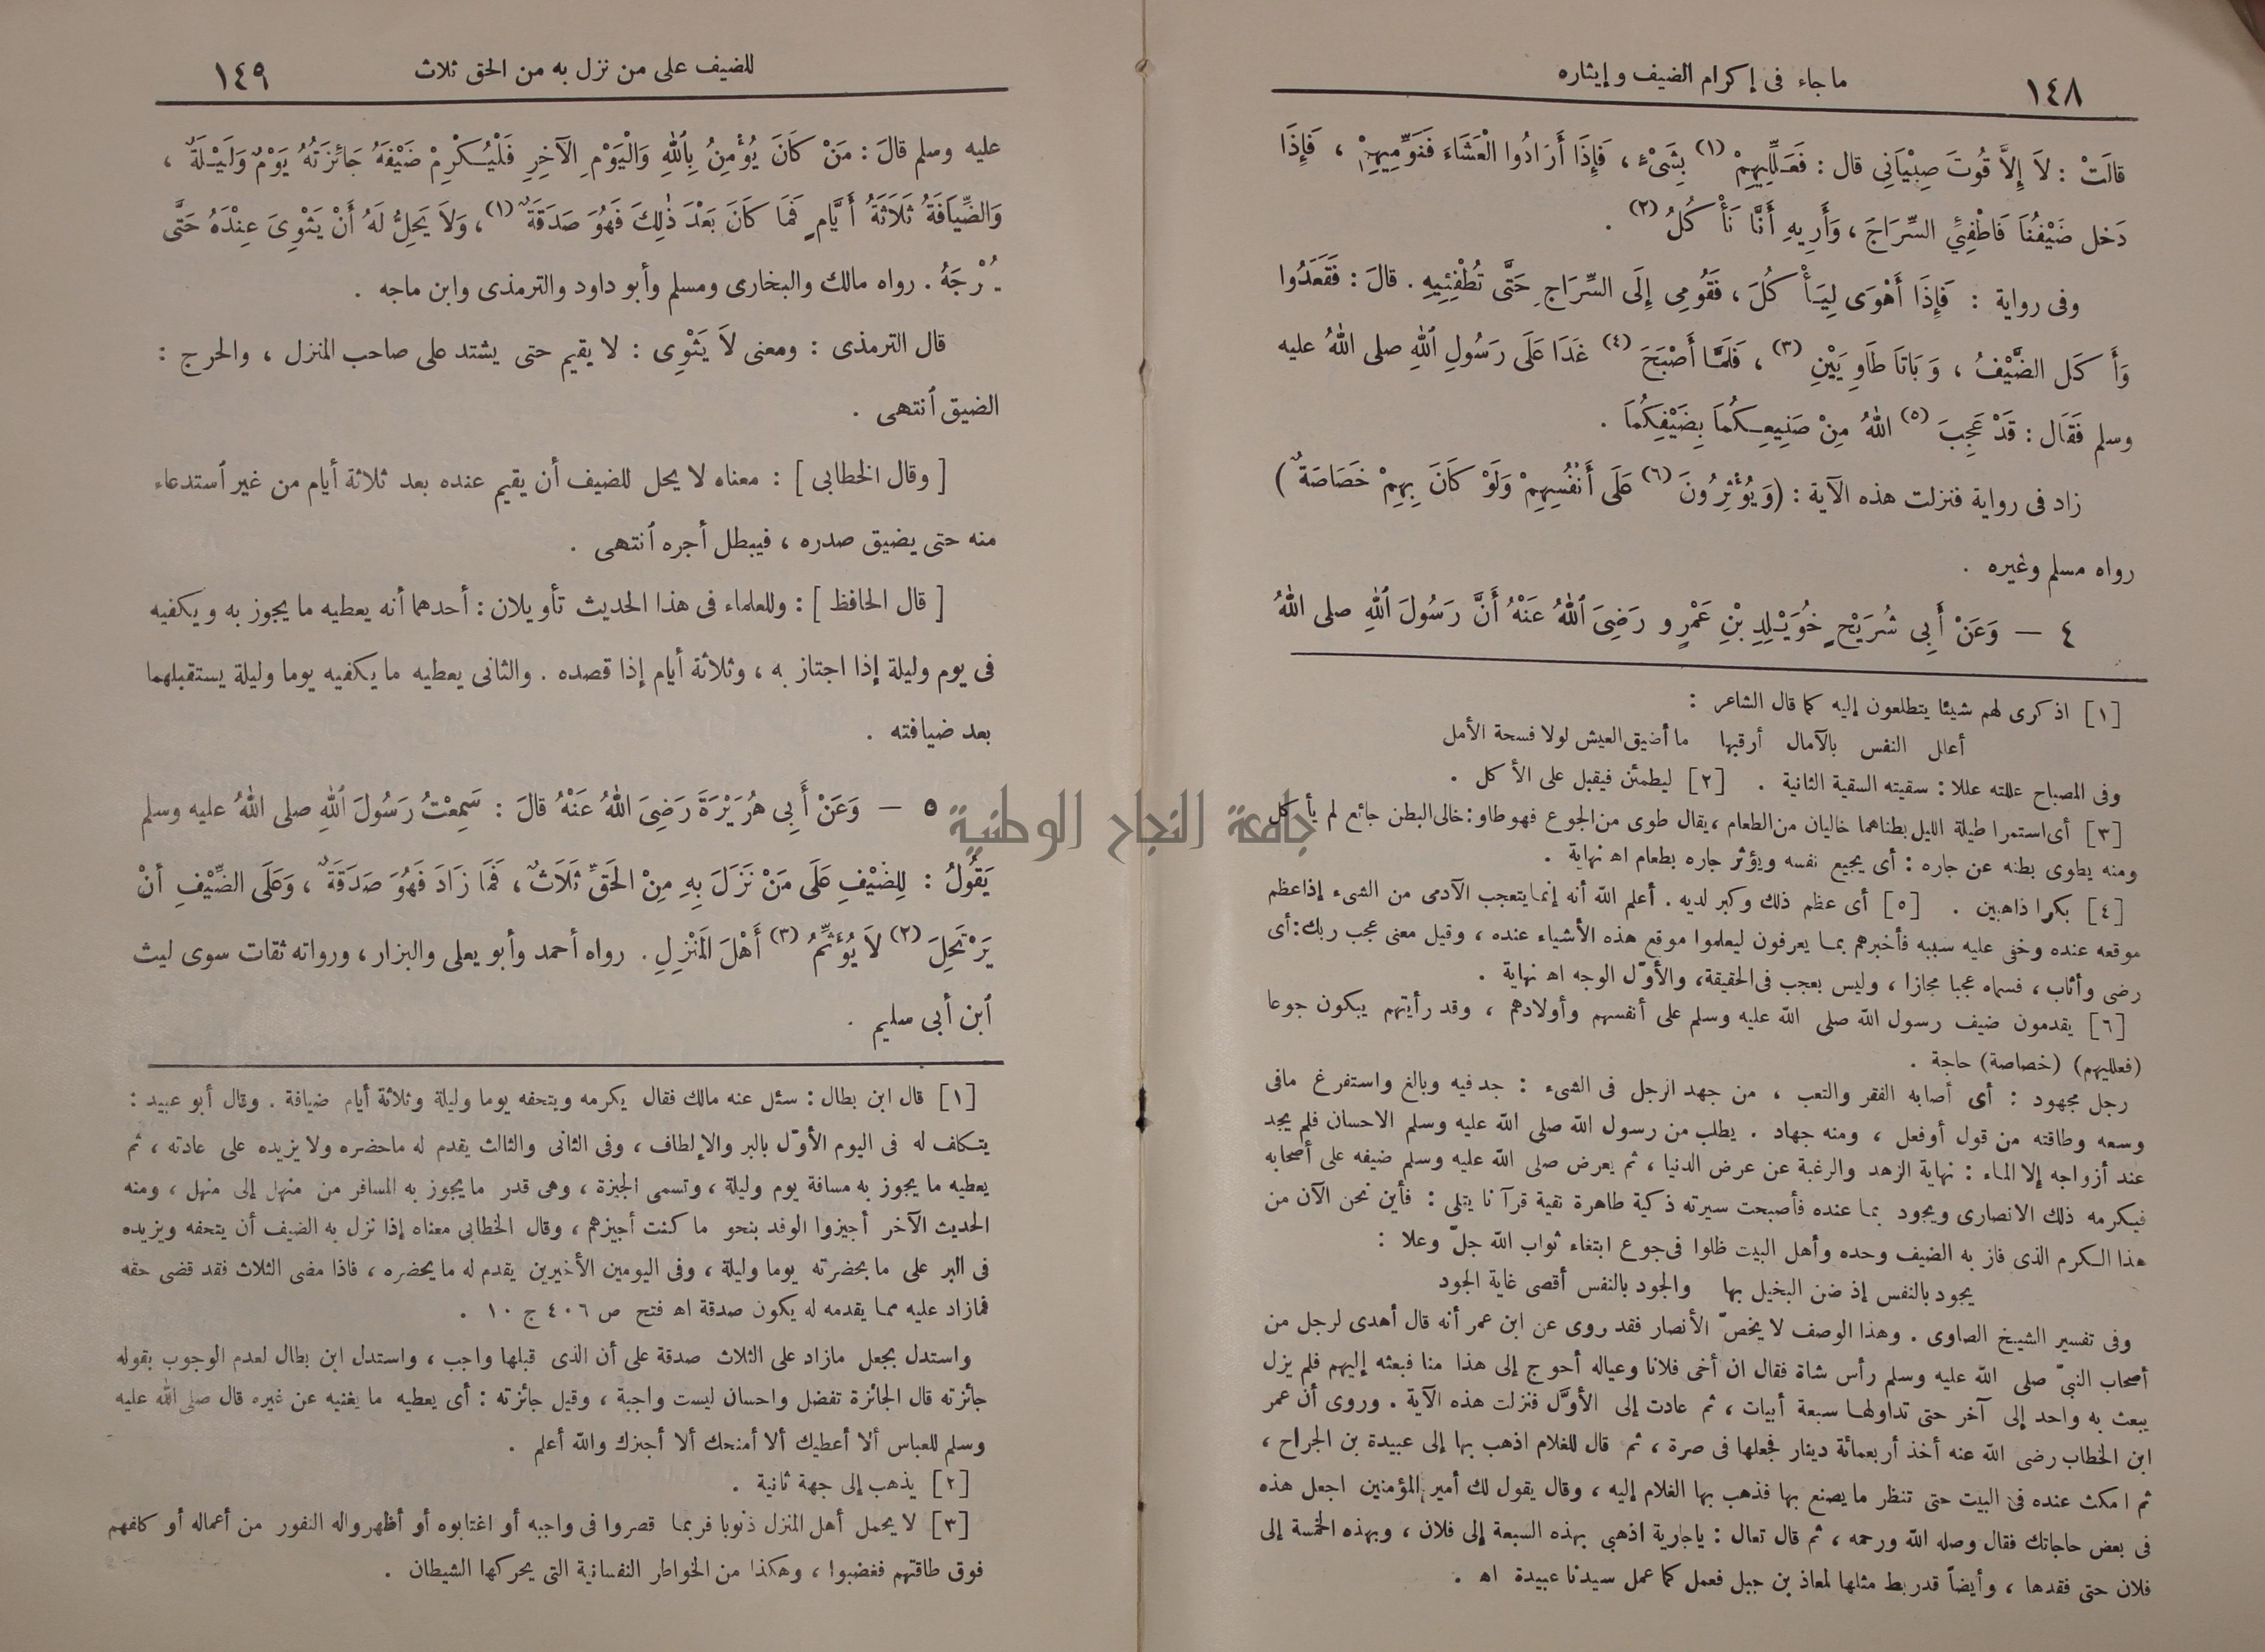 ١٤٨
ما جاء فى إكرام الضيف وإيثاره
قالَتْ : لاَ إِلاَّ قُوتَ صِبْيَانِى قال : فَعَلِّلِيهِمْ (١) بِشَىْءٍ ، فَإِذَا أَرَادُوا الْعَشَاءَ فَنَوِّمِيهِمْ ، فَإِذَا
دَخل ضَيْفُنَا فَاطْفِئِي السِّرَاجَ ، وَأَرِيهِ أَنَّا نَأْكُلُ (٢) .
وفى رواية : فَإِذَا أَهْوَى لِيَأْكُلَ ، فَقُومِى إِلَى السِّرَاجِ حَتَّى تُطْفِئِيهِ . قالَ : فَقَعَدُوا
وَأَكَل الضَّيْفُ ، وَبَاتَا طَاوِيَيْنِ (٣) ، فَلَمَّا أَصْبَحَ (٤) غَدَا عَلَى رَسُولِ ٱللهِ صلى اللهُ عليه
وسلم فَقَال : قَدْ عَجِبَ (٥) اللهُ مِنْ صَنِيعِكُمَا بِضَيْفِكُمَا .
زاد فى رواية فنزلت هذه الآية : (وَيُؤْثِرُونَ (٦) عَلَى أَنْفُسِهِمْ وَلَوْ كَانَ بِهِمْ خَصَاصَةٌ)
رواه مسلم وغيره .
٤ — وَعَنْ أَبِى شُرَيْحٍ خُوَيْلِدِ بْنِ عَمْرٍو رَضِىَ ٱللهُ عَنْهُ أَنَّ رَسُولَ ٱللهِ صلى اللهُ
[١] اذكرى لهم شيئا يتطلعون إليه كما قال الشاعر :
أعلل النفس بالآمال أرقبها ما أضيق العيش لولا فسحة الأمل
وفى المصباح عللته عللا : سقيته السقية الثانية . [٢] ليطمئن فيقبل على الأكل .
[٣] أى استمرا طيلة الليل بطناهما خاليان من الطعام ، يقال طوى من الجوع فهو طاو : خالى البطن جائع لم يأكل
ومنه يطوى بطنه عن جاره : أى يجيع نفسه ويؤثر جاره بطعام اه نهاية .
[٤] بكرا ذاهبين . [٥] أى عظم ذلك وكبر لديه . أعلم الله أنه إنما يتعجب الآدمى من الشىء إذا عظم
موقعه عنده وخفى عليه سببه فأخبرهم بما يعرفون ليعلموا موقع هذه الأشياء عنده ، وقيل معنى عجب ربك : أى
رضى وأثاب ، فسماه عجبا مجازا ، وليس بعجب فى الحقيقة، والأوّل الوجه اه نهاية .
[٦] يقدمون ضيف رسول الله صلى الله عليه وسلم على أنفسهم وأولادهم ، وقد رأيتهم يبكون جوعا
(فعلليهم) (خصاصة) حاجة .
رجل مجهود : أى أصابه الفقر والتعب ، من جهد الرجل فى الشىء : جد فيه وبالغ واستفرغ مافى
وسعه وطاقته من قول أوفعل ، ومنه جهاد . يطلب من رسول الله صلى الله عليه وسلم الاحسان فلم يجد
عند أزواجه إلا الماء : نهاية الزهد والرغبة عن عرض الدنيا ، ثم يعرض صلى الله عليه وسلم ضيفه على أصحابه
فيكرمه ذلك الانصارى ويجود بما عنده فأصبحت سيرته ذكية طاهرة نقية قرآنا يتلى : فأين نحن الآن من
هذا الكرم الذى فاز به الضيف وحده وأهل البيت ظلوا فى جوع ابتغاء ثواب الله جلّ وعلا :
يجود بالنفس إذ ضن البخيل بها والجود بالنفس أقصى غاية الجود
وفى تفسير الشيخ الصاوى . وهذا الوصف لا يخصّ الأنصار فقد روى عن ابن عمر أنه قال أهدى لرجل من
أصحاب النبىّ صلى الله عليه وسلم رأس شاة فقال ان أخى فلانا وعياله أحوج إلى هذا منا فبعثه إليهم فلم يزل
يبعث به واحد إلى آخر حتى تداولها سبعة أبيات ، ثم عادت إلى الأوّل فنزلت هذه الآية . وروى أن عمر
ابن الخطاب رضى الله عنه أخذ أربعمائة دينار فجعلها فى صرة ، ثم قال للغلام اذهب بها إلى عبيدة بن الجراح ،
ثم امكث عنده فى البيت حتى تنظر ما يصنع بها فذهب بها الغلام إليه ، وقال يقول لك أمير المؤمنين اجعل هذه
فى بعض حاجاتك فقال وصله الله ورحمه ، ثم قال تعال : ياجارية اذهبى بهذه السبعة إلى فلان ، وبهذه الخمسة إلى
فلان حتى فقدها ، وأيضاً قدر بط مثلها لمعاذ بن جبل فعمل كما عمل سيدنا عبيدة اه .
للضيف على من نزل به من الحق ثلاث
١٤٩
عليه وسلم قالَ : مَنْ كَانَ يُؤْمِنُ بِٱللهِ وَالْيَوْمِ الآخِرِ فَلْيُكْرِمْ ضَيْفَهُ جَائِزَتُهُ يَوْمٌ وَلَيْلَةٌ ،
وَالضِّيَافَةُ ثَلاَثَةُ أَيَّامٍ فَمَا كَانَ بَعْدَ ذٰلِكَ فَهُوَ صَدَقَةٌ (١) ، وَلاَ يَحِلُّ لَهُ أَنْ يَثْوِىَ عِنْدَهُ حَتَّى
يُحْرِجَهُ . رواه مالك والبخارى ومسلم وأبو داود والترمذى وابن ماجه .
قال الترمذى : ومعنى لاَ يَثْوِى : لا يقيم حتى يشتد على صاحب المنزل ، والحرج :
الضيق ٱنتهى .
[ وقال الخطابى ] : معناه لا يحل للضيف أن يقيم عنده بعد ثلاثة أيام من غير ٱستدعاء
منه حتى يضيق صدره ، فيبطل أجره ٱنتهى .
[ قال الحافظ ] : وللعلماء فى هذا الحديث تأويلان : أحدهما أنه يعطيه ما يجوز به ويكفيه
فى يوم وليلة إذا اجتاز به ، وثلاثة أيام إذا قصده . والثانى يعطيه ما يكفيه يوما وليلة يستقبلهما
بعد ضيافته .
٥ — وَعَنْ أَبِى هُرَيْرَةَ رَضِىَ اللهُ عَنْهُ قالَ : سَمِعْتُ رَسُولَ ٱللهِ صلى اللهُ عليه وسلم
يَقُولُ : لِلضَيْفِ عَلَى مَنْ نَزَلَ بِهِ مِنْ الحَقِّ ثَلاَثٌ ، فَمَا زَادَ فَهُوَ صَدَقَةٌ ، وَعَلَى الضَّيْفِ أنْ
يَرْتَحِلَ (٢) لاَ يُؤَثِّمُ (٣) أَهْلَ المَنْزِلِ . رواه أحمد وأبو يعلى والبزار ، ورواته ثقات سوى ليث
ٱبن أبى سليم .
[١] قال ابن بطال : سئل عنه مالك فقال يكرمه ويتحفه يوما وليلة وثلاثة أيام ضيافة . وقال أبو عبيد :
يتكلف له فى اليوم الأوّل بالبر والإلطاف ، وفى الثانى والثالث يقدم له ماحضره ولا يزيده على عادته ، ثم
يعطيه ما يجوز به مسافة يوم وليلة ، وتسمى الجيزة ، وهى قدر ما يجوز به المسافر من منهل إلى منهل ، ومنه
الحديث الآخر أجيزوا الوفد بنحو ما كنت أجيزهم ، وقال الخطابى معناه إذا نزل به الضيف أن يتحفه ويزيده
فى البر على ما بحضرته يوما وليلة ، وفى اليومين الأخيرين يقدم له ما يحضره ، فاذا مضى الثلاث فقد قضى حقه
فمازاد عليه مما يقدمه له يكون صدقة اه فتح ص ٤٠٦ ج ١٠ .
واستدل بجعل مازاد على الثلاث صدقة على أن الذى قبلها واجب ، واستدل ابن بطال لعدم الوجوب بقوله
جائزته قال الجائزة تفضل واحسان ليست واجبة ، وقيل جائزته : أى يعطيه ما يغنيه عن غيره قال صلى الله عليه
وسلم للعباس ألا أعطيك ألا أمنحك ألا أجيزك والله أعلم .
[٢] يذهب إلى جهة ثانية .
[٣] لا يحمل أهل المنزل ذنوبا فربما قصروا فى واجبه أو اغتابوه أو أظهروا له النفور من أعماله أو كلفهم
فوق طاقتهم فغضبوا ، وهكذا من الخواطر النفسانية التى يحركها الشيطان .
جامعة النجاح الوطنية